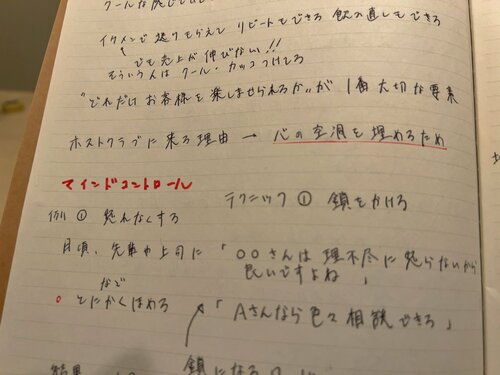 イケメンで送りもらえて リピートもできる 飲み直しもできる
でも売上が伸びない!!
そういう人は クール・カッコつけてる
"どれだけ お客様を楽しませられるか" が 1番大切な要素
ホストクラブに来る理由 → 心の空洞を埋めるため
マインドコントロール
テクニック ① 鎖をかける
例 ① 怒れなくする
日頃、先輩や上司に 「〇〇さんは理不尽に怒らないから
良いですよね」
など
とにかくほめる
「Aさんなら色々相談できる」
鎖になるワード
結果